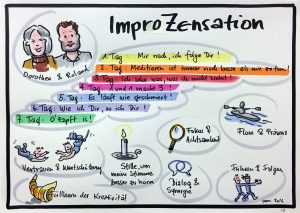 ImproZensation
Dorothea & Roland
1. Tag: Mir nach, ich folge Dir!
2. Tag: Meditieren ist immer noch besser als
3. Tag: Ich sehe was, was du nicht siehst!
4. Tag: 1 und 1 macht 3!
5. Tag: Es läuft wie geschmiert!
6. Tag: Wie ich Dir, so ich Dir!
7. Tag: O'zapft is!
Vertrauen & Wertschätzung
Stille, um
meine Stimme
besser zu hören
Fokus &
Achtsamkeit
Dialog &
Synergie
Flow & Präsenz
Führen & Folgen
der Kreativität